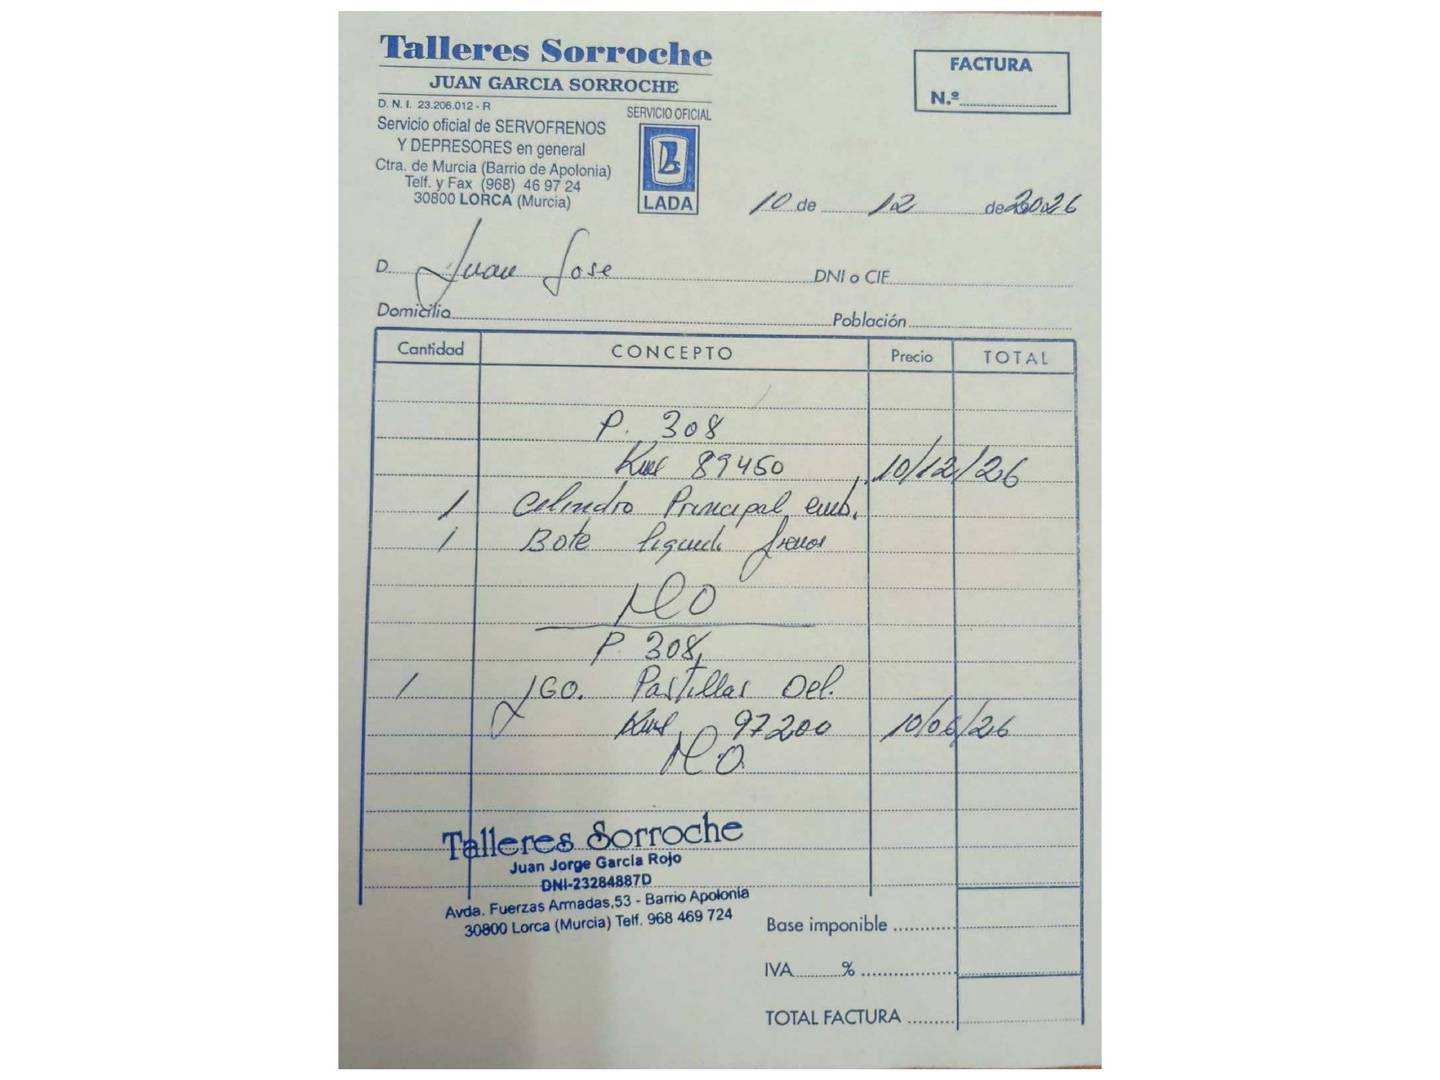 Talleres Sorroche
JUAN GARCIA SORROCHE
D. N. I. 23.206.012 - R
Servicio oficial de SERVOFRENOS
Y DEPRESORES en general
Ctra. de Murcia (Barrio de Apolonia)
Telf. y Fax (968) 46 97 24
30800 LORCA (Murcia)
SERVICIO OFICIAL
LADA
FACTURA
N.º
10 de 12 de 2026
D. Juan Jose DNI o CIF
Domicilio Población
Cantidad CONCEPTO Precio TOTAL
P. 308
Kms 89450 10/12/26
1 Cilindro Principal emb.
1 Bote liquido frenos
MO
P. 308
1 JGO. Pastillas Del.
Kms 97200 10/06/26
M.O.
Talleres Sorroche
Juan Jorge García Rojo
DNI-23284887D
Avda. Fuerzas Armadas,53 - Barrio Apolonia
30800 Lorca (Murcia) Telf. 968 469 724
Base imponible
IVA %
TOTAL FACTURA